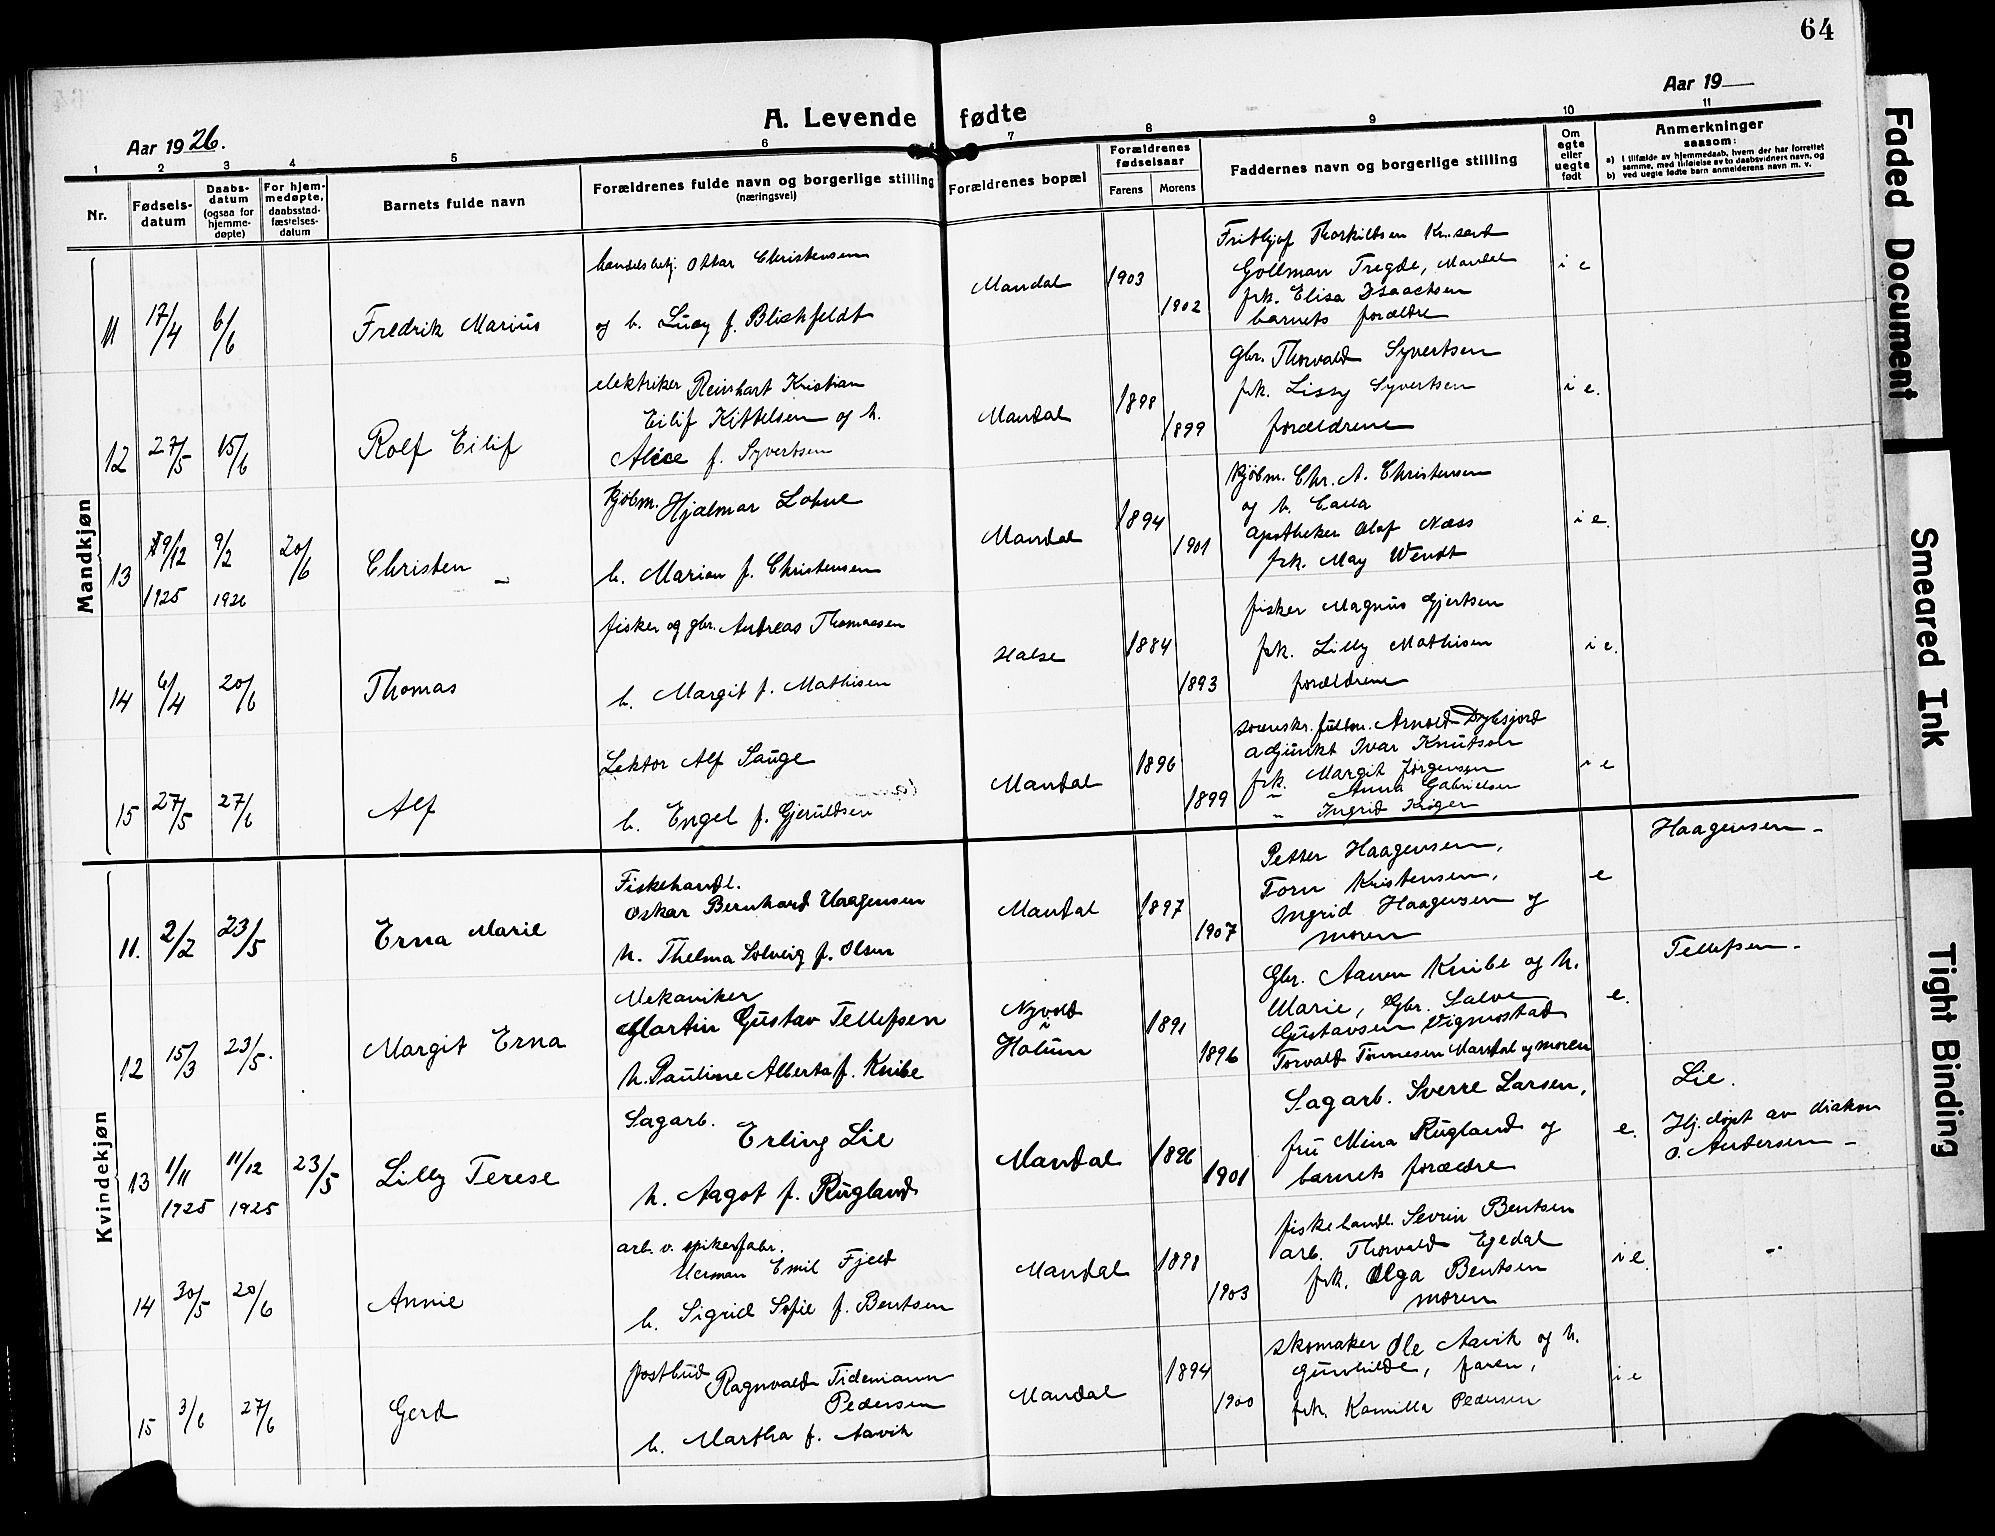 64
Aar 19
Aar 1926.
A. Levende fødte
1 2 3 4 5 6 7 8 9 10 11
Nr.
Fødsels-
datum
Daabs-
datum
(ogsaa for
hjemme-
døpte)
For hjem-
medøpte,
daabsstad-
fæstelses-
datum
Barnets fulde navn
Forældrenes fulde navn og borgerlige stilling
(næringsvei)
Forældrenes bopæl
Forældrenes
fødselsaar
Farens Morens
Faddernes navn og borgerlige stilling
Om
egte
eller
uegte
født
Anmerkninger
saasom:
a) I tilfælde av hjemmedaab, hvem der har forrettet
samme, med tilføielse av to daabsvidners navn, og
b) ved uegte fødte barn anmelderens navn m. v.
Mandkjøn
11 17/4 6/6 Fredrik Marius
handelsbetj. Ottar Christensen
og h. Lucy f. Blichfeldt
Mandal 1903 1902
Frithjof Thorkildsen Kr.sand
Gollman Tregde, Mandal
frk. Elisa Isaachsen
barnets forældre
i e
12 27/5 15/6 Rolf Eilif
elektriker Reinhart Kristian
Eilif Kittelsen og h.
Alice f. Syvertsen
Mandal 1898 1899
gbr. Thorvald Syvertsen
frk. Lissy Syvertsen
forældrene
i e.
13 9/12 1925 9/2 1926 20/6 Christen
kjøbm. Hjalmar Lohne
h. Marion f. Christensen
Mandal 1894 1901
Kjøbm. Chr. A. Christensen
og h.
apotheker Olaf Næss
frk. May Wendt
i e.
14 6/4 20/6 Thomas
fisker og gbr. Andreas Thomassen
h. Margit f. Mathisen
Halse 1884 1893
fisker Magnus Gjertsen
frk. Lilly Mathisen
forældrene
i e.
15 27/5 27/6 Alf
Lektor Alf Sauge
h. Engel f. Gjeruldsen
Mandal 1896 1899
Arnold
adjunkt Ivar Knutson
frk. Margit Jørgensen
" Anna Gabrielsen
" Ingrid Krøger
i e
Kvindekjøn
11. 2/2 23/5 Erna Marie
Fiskehandl.
Oskar Bernhard Haagensen
h. Thelma Solveig f. Olsen
Mandal 1897 1907
Petter Haagensen,
Torn Kristensen,
Ingrid Haagensen og
moren
e
Haagensen -
12 15/3 23/5. Margit Erna
Mekaniker
Martin Gustav Tellefsen
h. Pauline Alberta f. Knibe
Nyvold
Holum
1891 1896
Gbr. Aanen Knibe og h.
Marie, Gbr. Salve
Gustavsen Vigmostad
Torvald Tønnesen Mandal og moren
e.
Tellefsen -
13 1/11 1925 11/12 1925 23/5 Lilly Terese
Sagarb.
Erling Lie
h. Aagot f. Rugland
Mandal 1896 1901
Sagarb. Sverre Larsen,
fru Mina Rugland og
barnets forældre
e.
Lie.
Hj. døpt av diakon
O. Andersen -
14 30/5 20/6 Annie
arb. v. spikerfabr.
Herman Emil Fjeld
h. Sigrid Sofie f. Bentsen
Mandal 1898 1903
fiskehandl. Sevrin Bentsen
arb. Thorvald Egedal
frk. Olga Bentsen
moren
i e.
15 3/6 27/6 Gerd
postbud Ragnvald Tidemann
Pedersen
h. Martha f. Aavik
Mandal 1894 1900
skomaker Ole Aavik og h.
Gunhilde, faren,
frk. Kamilla Pedersen
i e
Faded Document
Smeared Ink
Tight Binding